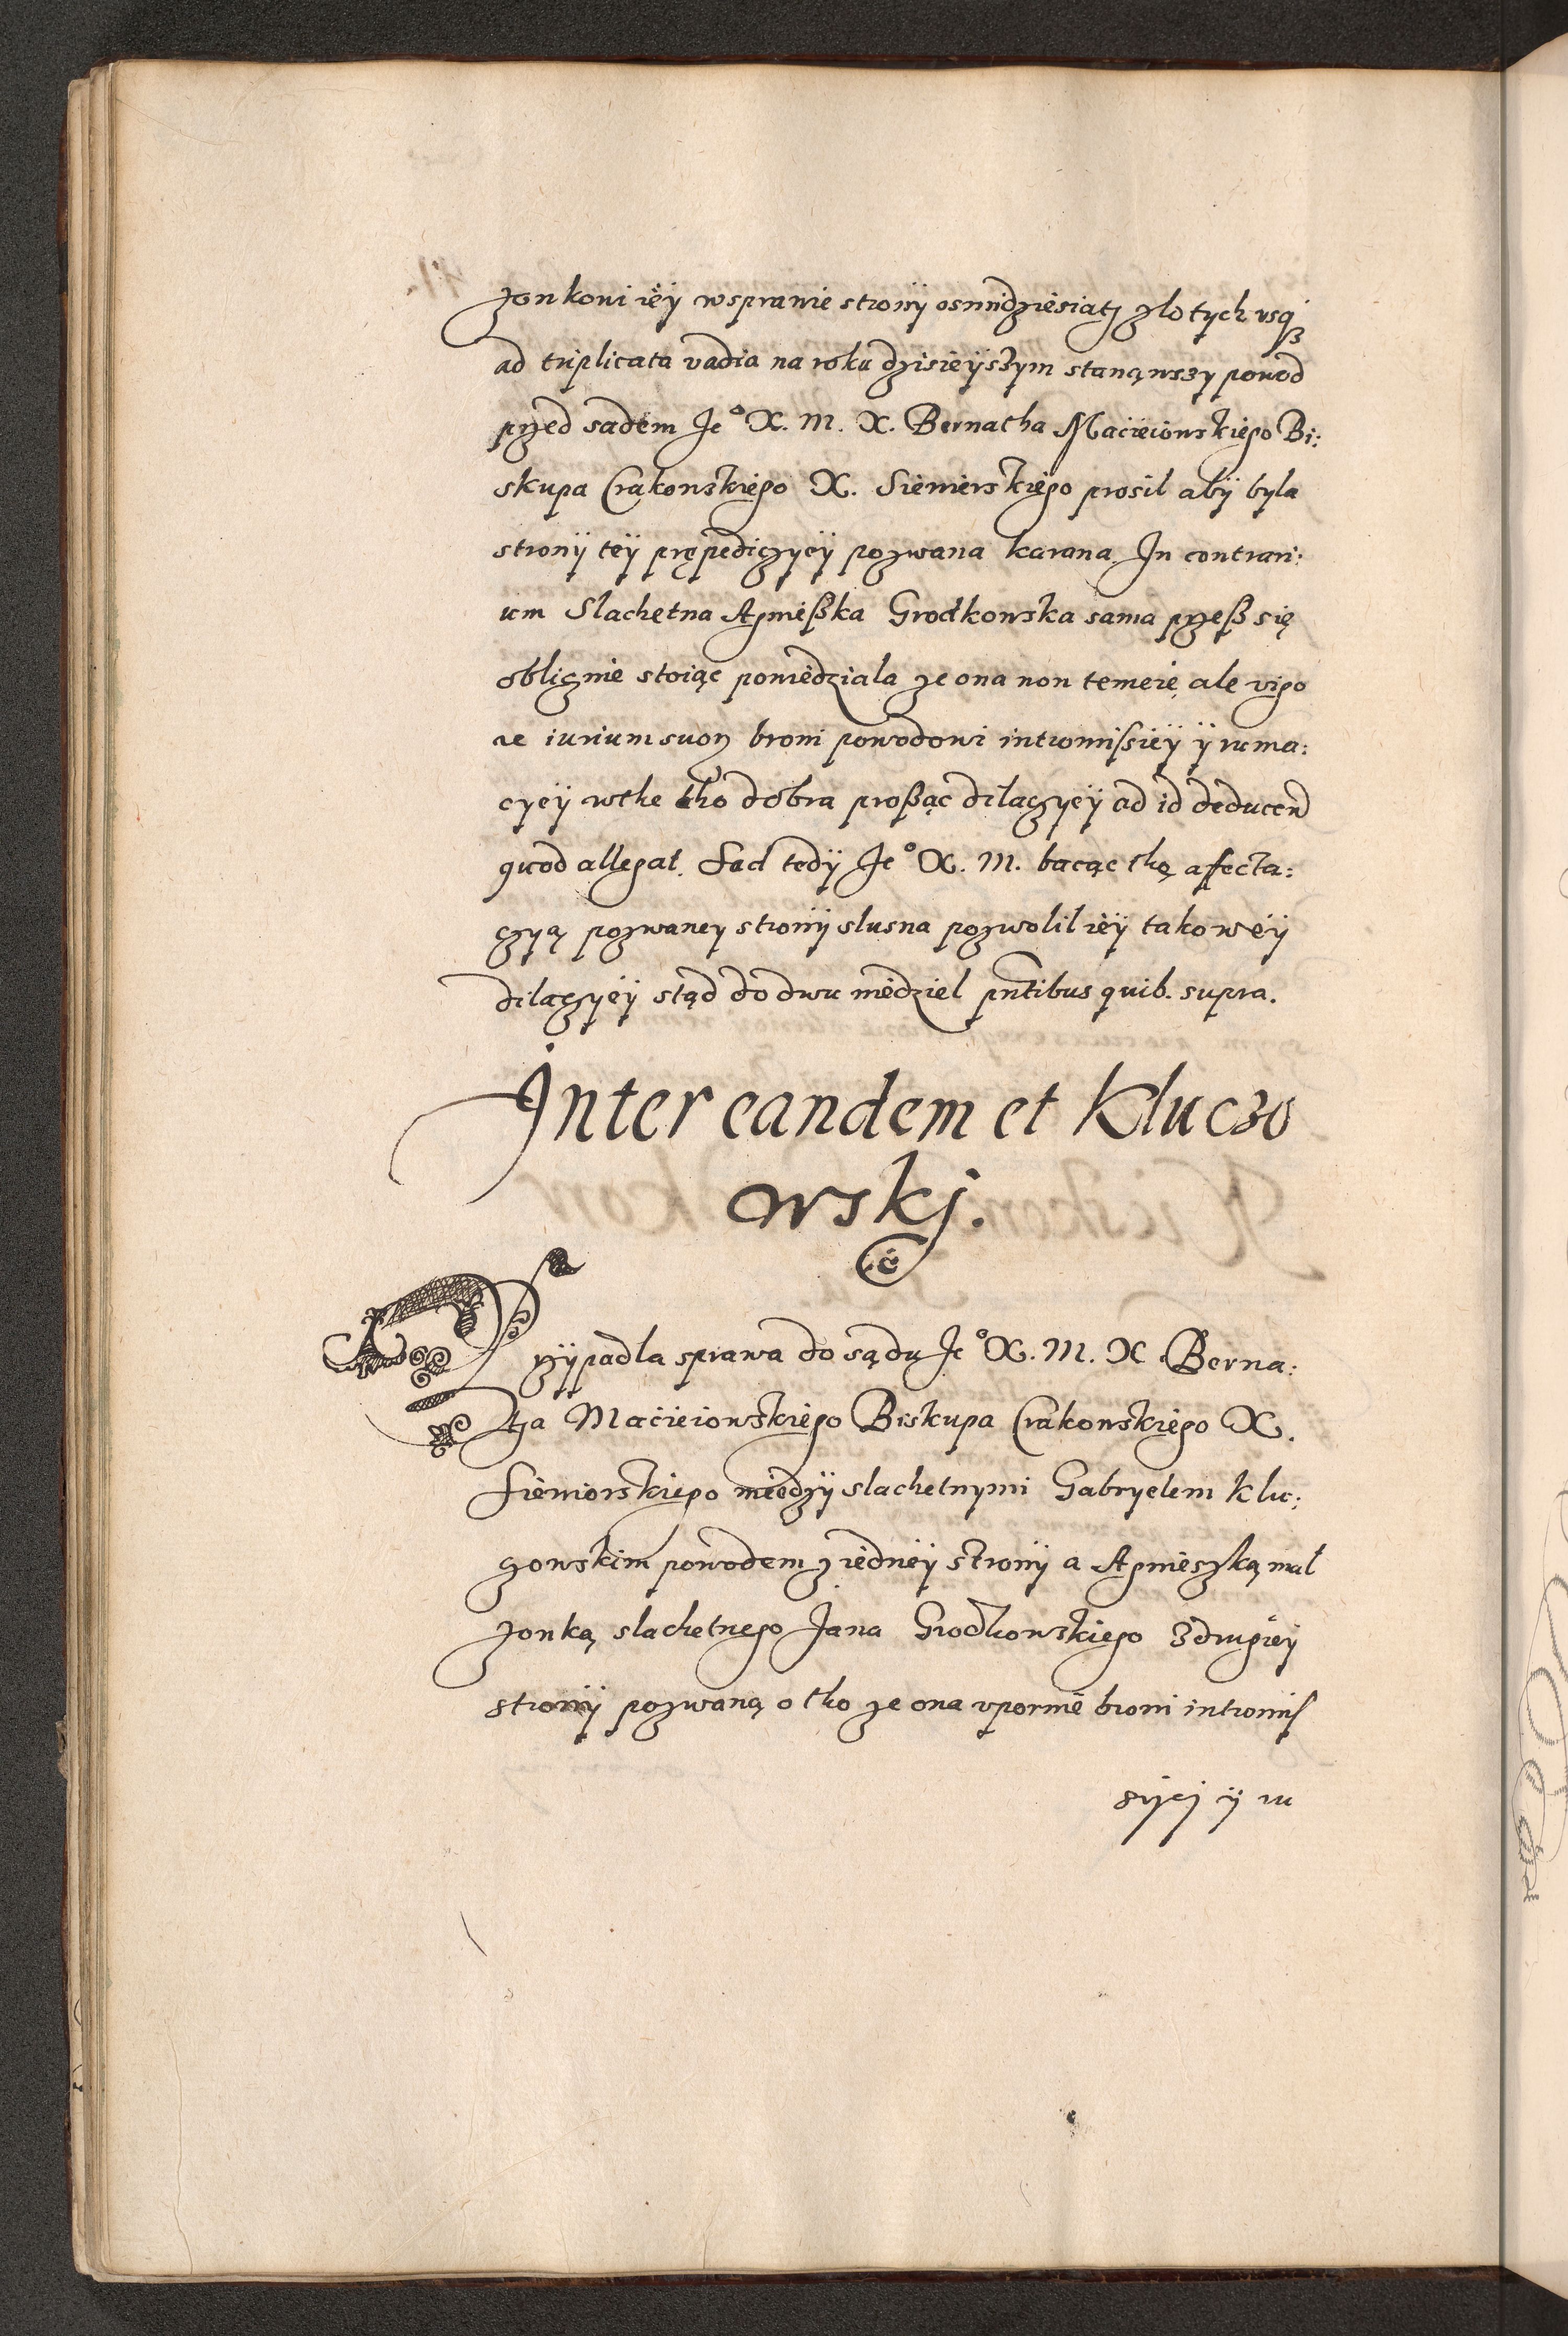 zonkowi ieÿ wsprawie stronÿ osmidziesiąṫ zlotych usqꝫ
ad triplicata vadia na roku dzisieÿszym stanąwszy powod
przed sadem Je° X. M. X. Bernatha Macieiowskiego Bi:
skupa Crakowskiego X. Siewierskiego prosil abÿ byla
stronÿ teÿ prępediczyeÿ pozwana karana. In contrari:
um Slachetna Agnieszka Grodkowska sama przeß się
oblicznie stoiąc powiedziala ze ona non temerè, ale vigo
re iurium suoꝝ broni powodowi intromissieÿ ÿ ruma:
cyeÿ wthe tho dobra proßąc dilaczyeÿ ad id deducend
quod allegat. Sąd tedÿ Je° X. M. bacąc thę afecta:
czyą pozwaney stronÿ slusna pozwolil ieÿ takoweÿ
dilaczyeÿ stąd do dwu niedziel pntibus quib. supra.
Inter eandem et Kluczo
wskj.
Przÿpadla sprawa do sądu Je° X. M. X. Berna:
tha Macieiowskiego Biskupa Crakowskiego X.
Siewierskiego miedzÿ slachetnymi Gabryelem Kluc:
zowskim powodem z iedneÿ stronÿ a Agnieszką mal
zonką slachetnego Jana Grodkowskiego z drugieÿ
stronÿ pozwaną o tho ze ona vpornie broni intromis
sijej ÿ ru